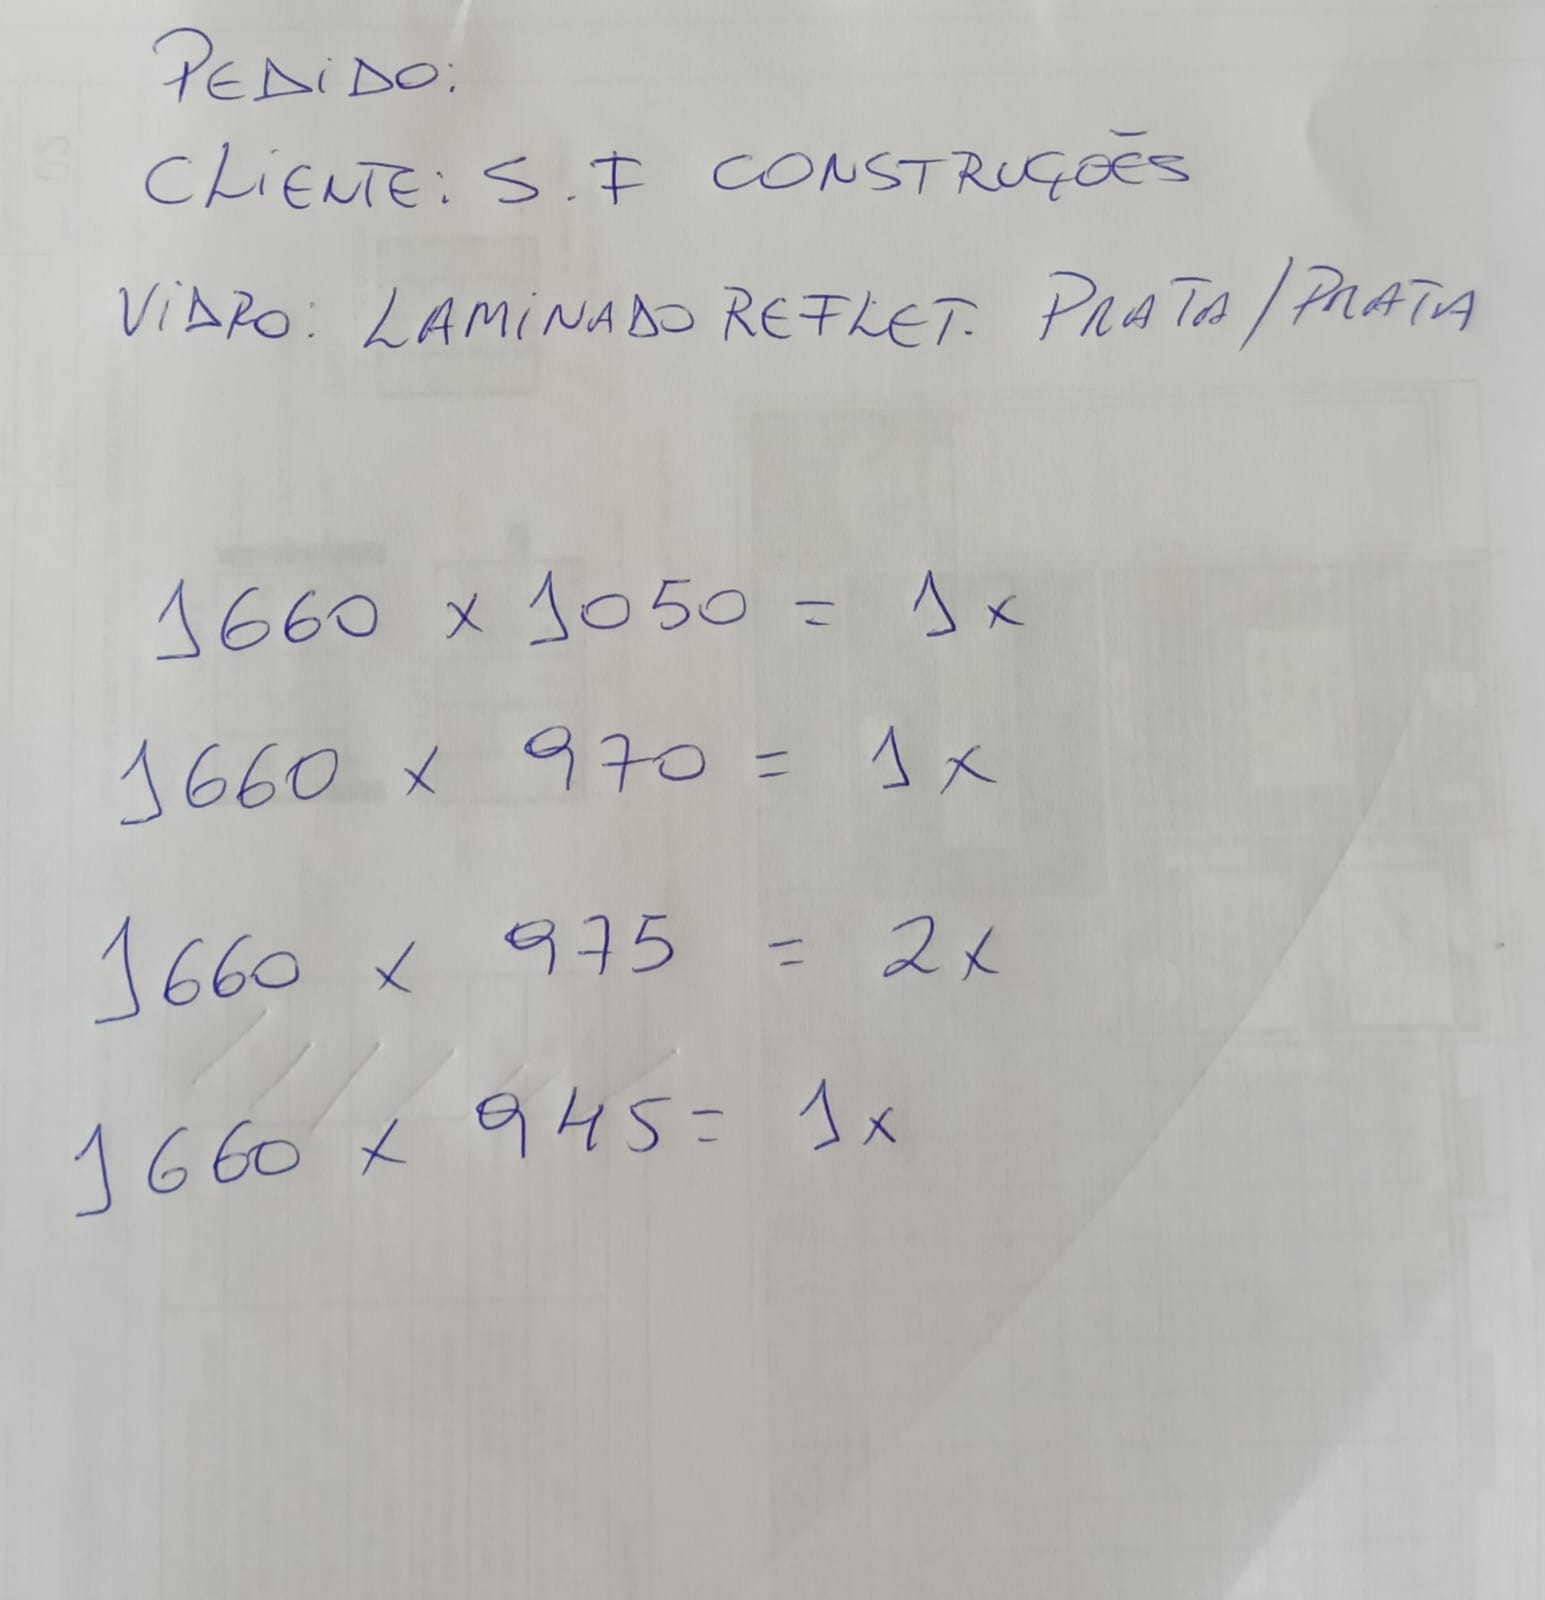 PEDiDO:
CLiENTE: S.F CONSTRUÇÕES
ViDRO: LAMiNADO REFLET. PRATA/PRATA
1660 x 1050 = 1x
1660 x 970 = 1x
1660 x 975 = 2x
1660 x 945 = 1x